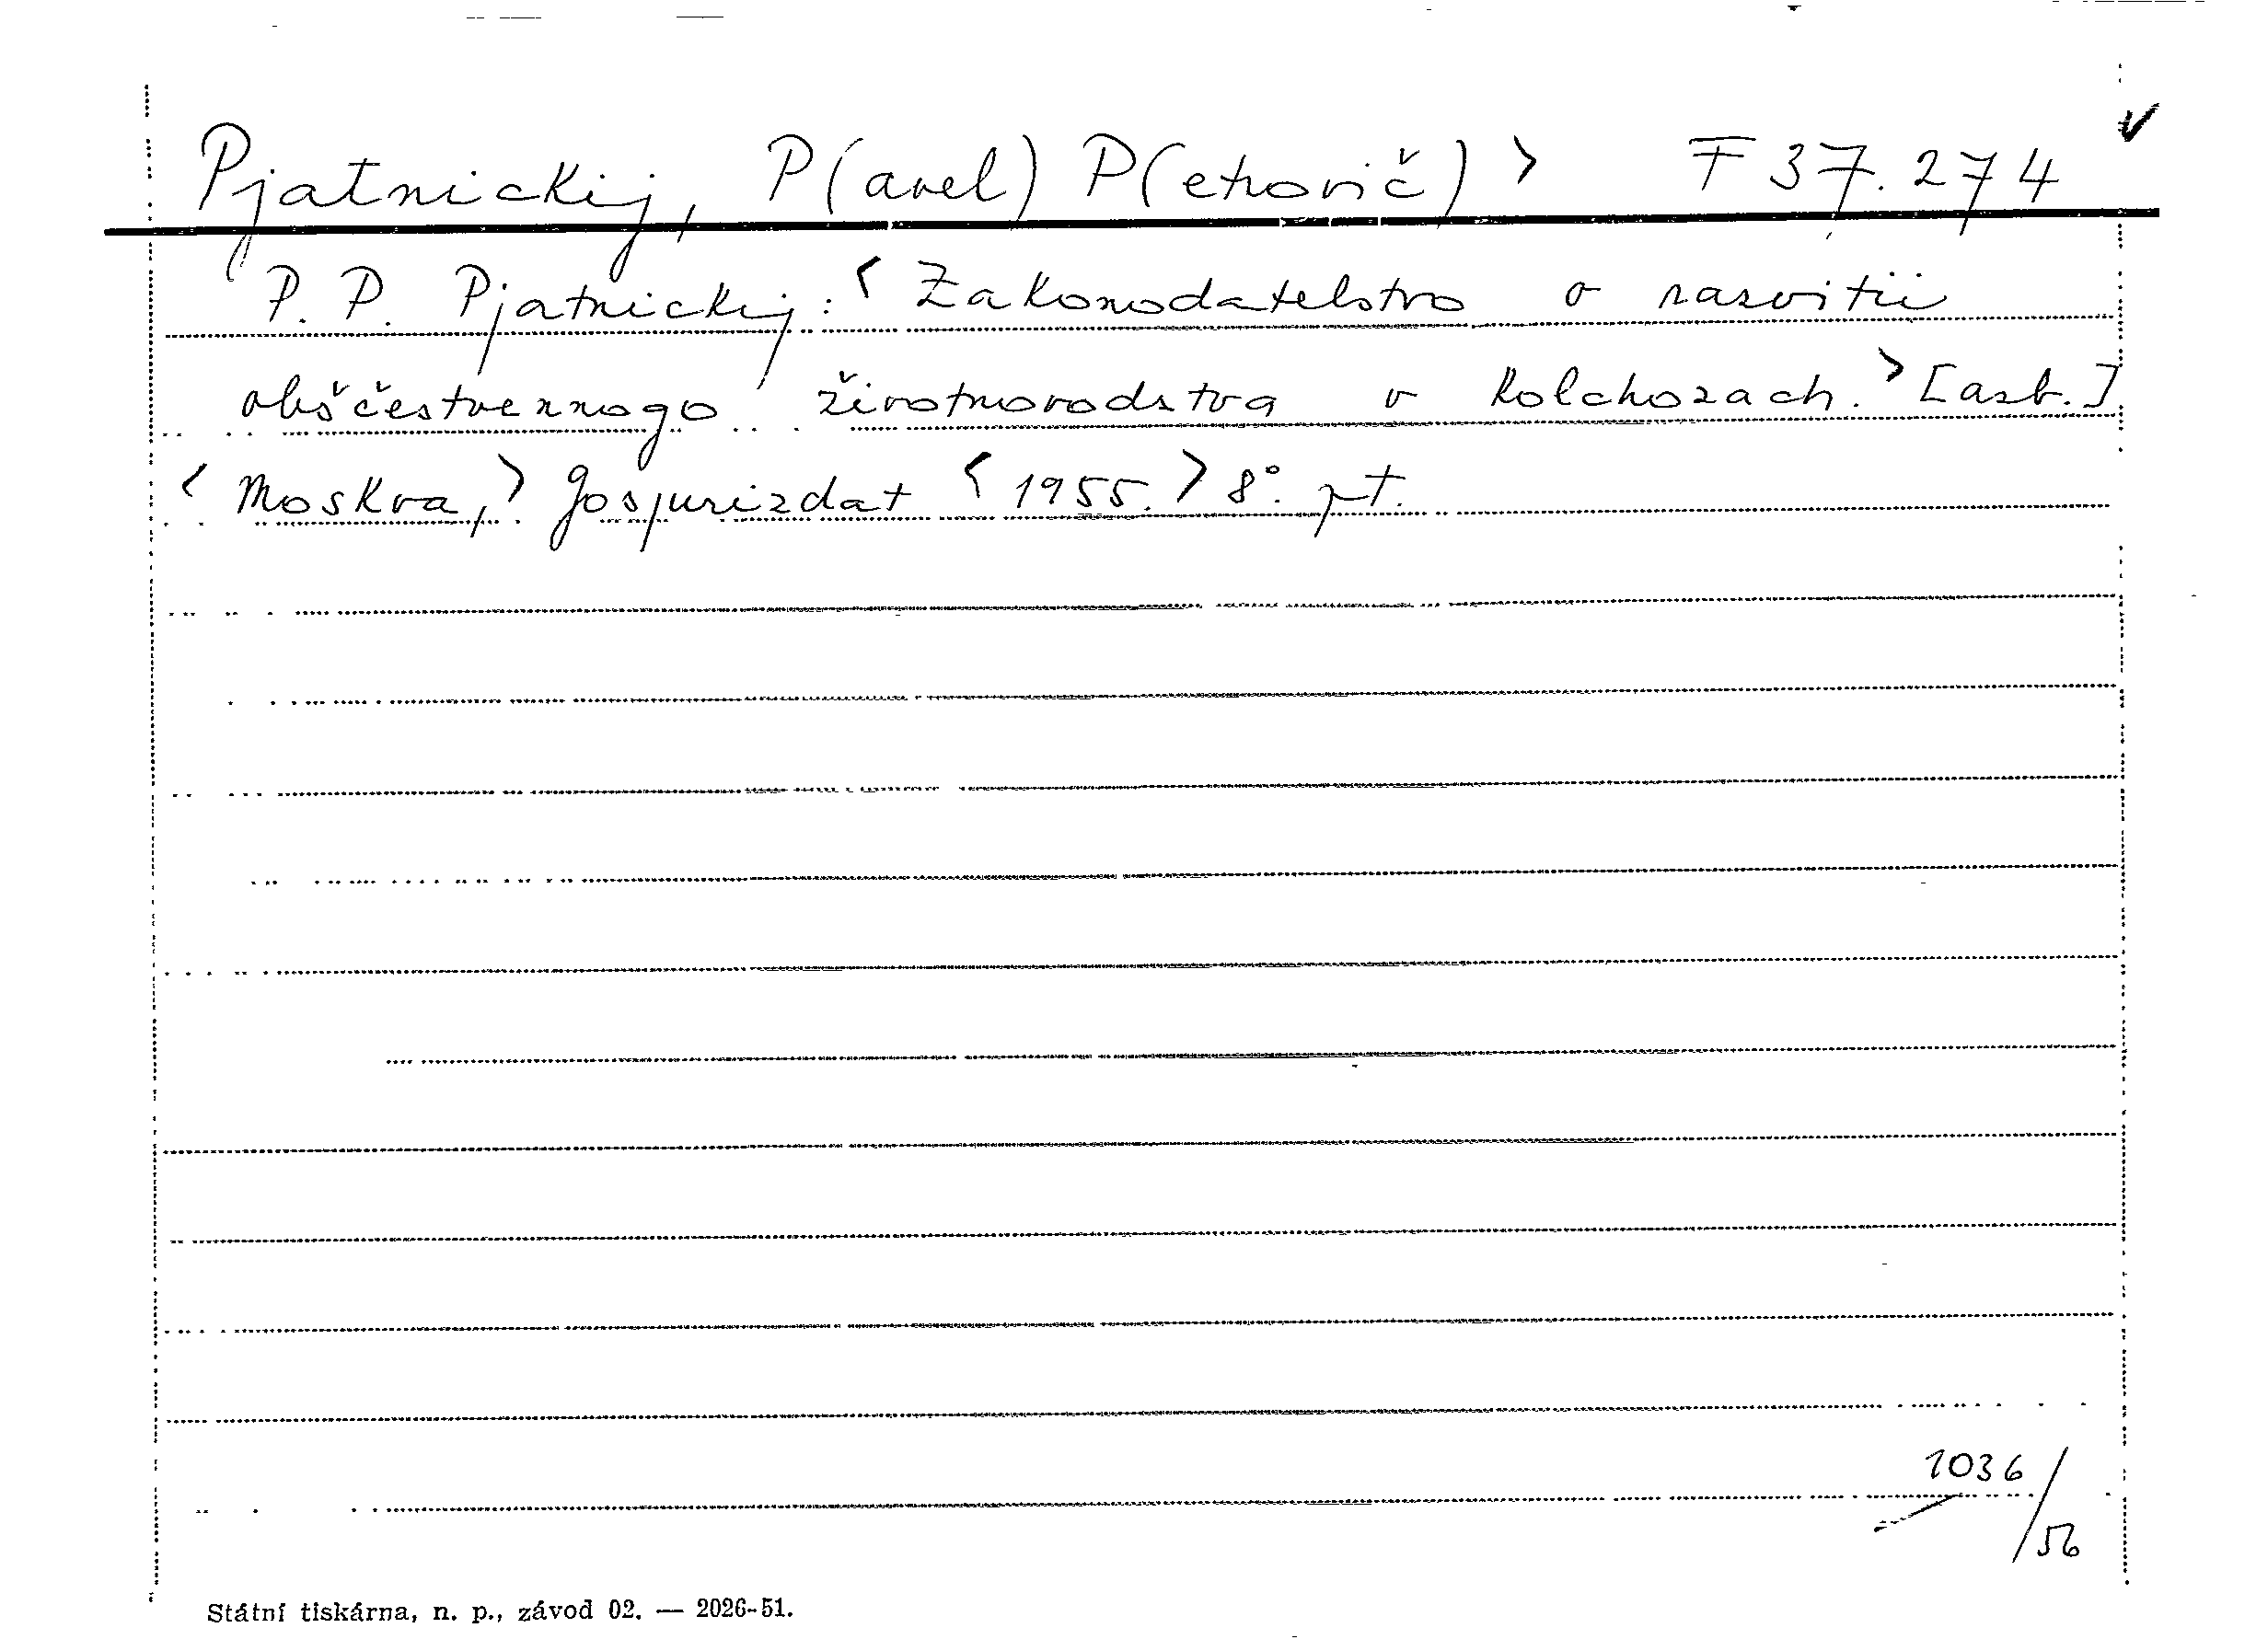 Pjatnickij, P(avel) P(etrovič) > F 37.274
P. P. Pjatnickij: < Zakonodatelstvo o razvitii
obščestvennogo životnovodstva v kolchozach. > [azb.]
< Moskva, > Gosjurizdat < 1955. > 8°. pt.
1036/56
Státní tiskárna, n. p., závod 02. — 2026-51.